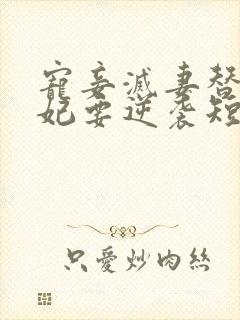 寵妾滅妻替
妃要逆袭短
只愛炒肉絲